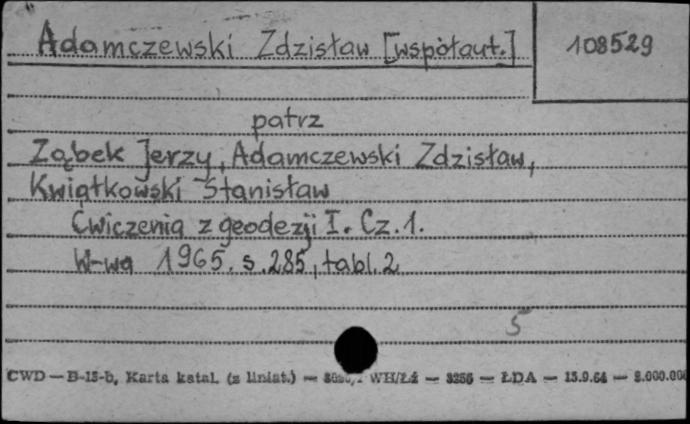 Adamczewski Zdzisław [współaut.]
108529
patrz
Ząbek Jerzy, Adamczewski Zdzisław,
Kwiatkowski Stanisław
Ćwiczenia z geodezji I. Cz.1.
W-wa 1965. s.285, tabl.2
5
CWD — B-15-b, Karta katal. (z liniat.) — WH/Łź — 3256 — ŁDA — 15.9.64 —